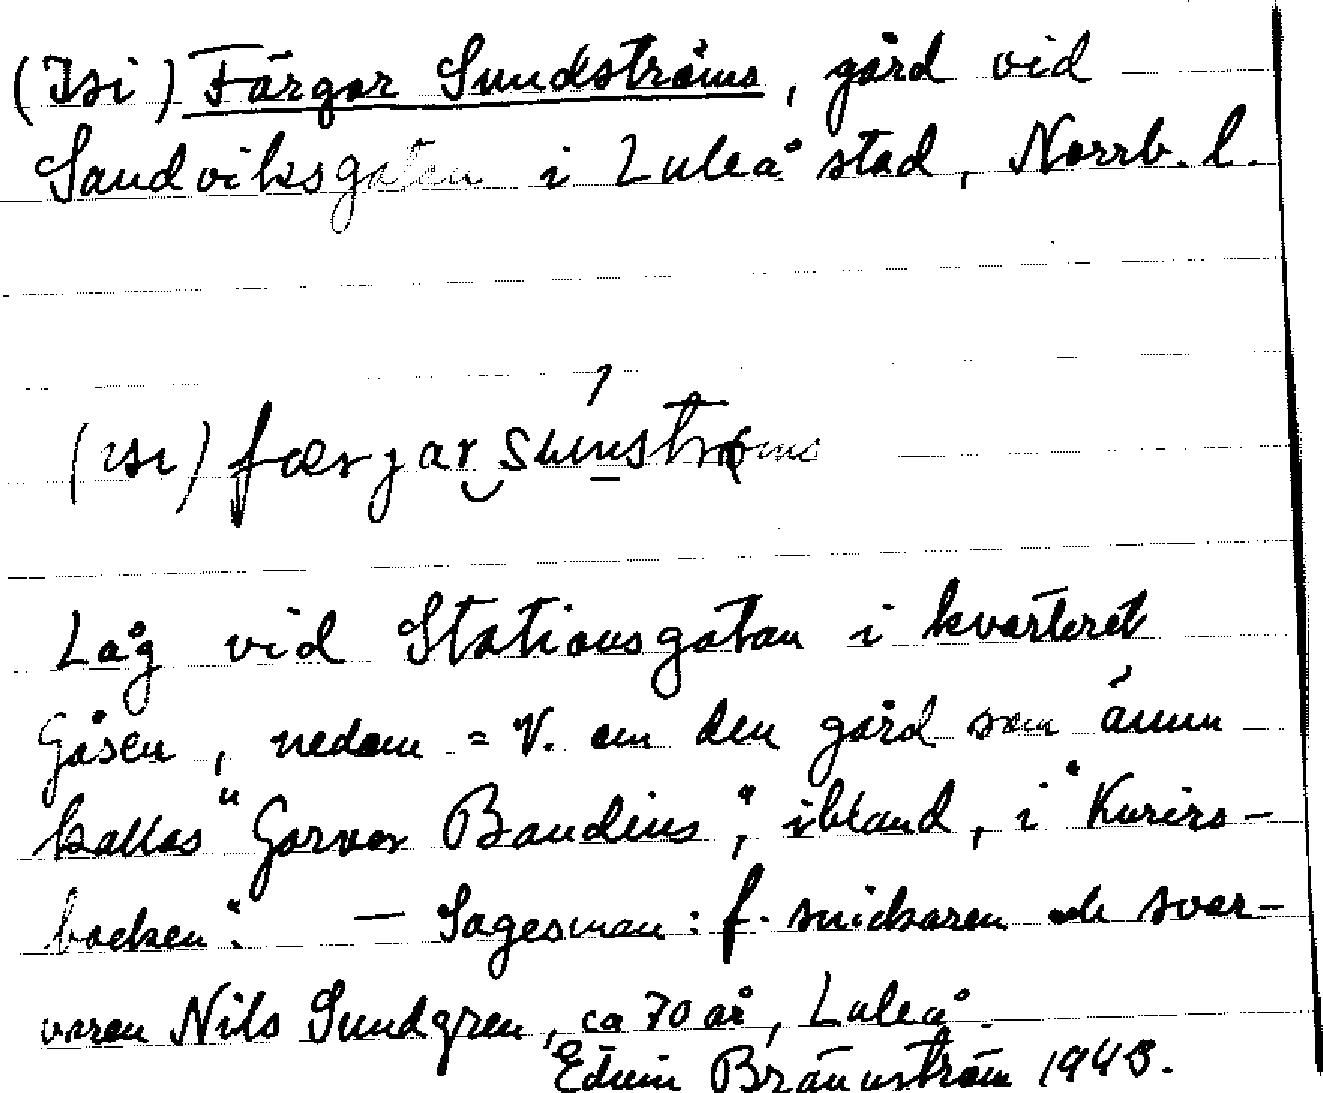 (Isi) Färgar Sundströms, gård vid
Sandviksgatan i Luleå stad, Norrb. l.
(ısı) færjar sunströms
Låg vid Stationsgatan i kvarteret
Gåsen, nedom = V. om den gård som ännu
kallas "Garvar Baudins", ibland, i "Kurirs-
backen". — Sagesman: f. snickaren och svar-
varen Nils Sundgren, ca 70 år, Luleå.
Edvin Brännström 1943.